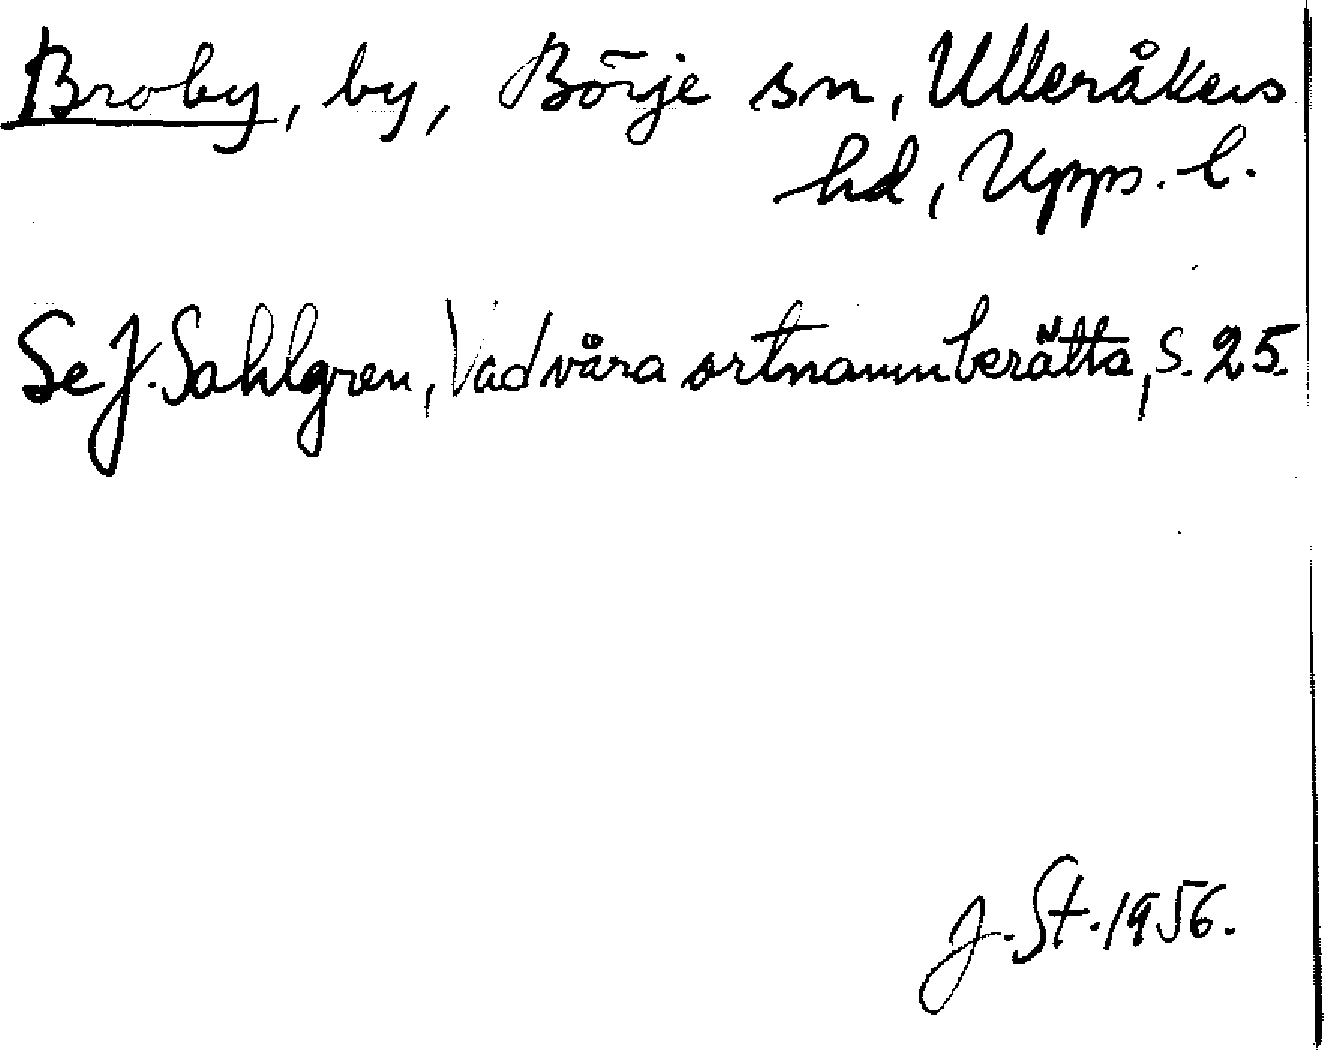 Broby, by, Börje sn, Ulleråkers
hd, Upps. l.
Se J. Sahlgren, Vad våra ortnamn berätta, s. 25.
J. St. 1956.